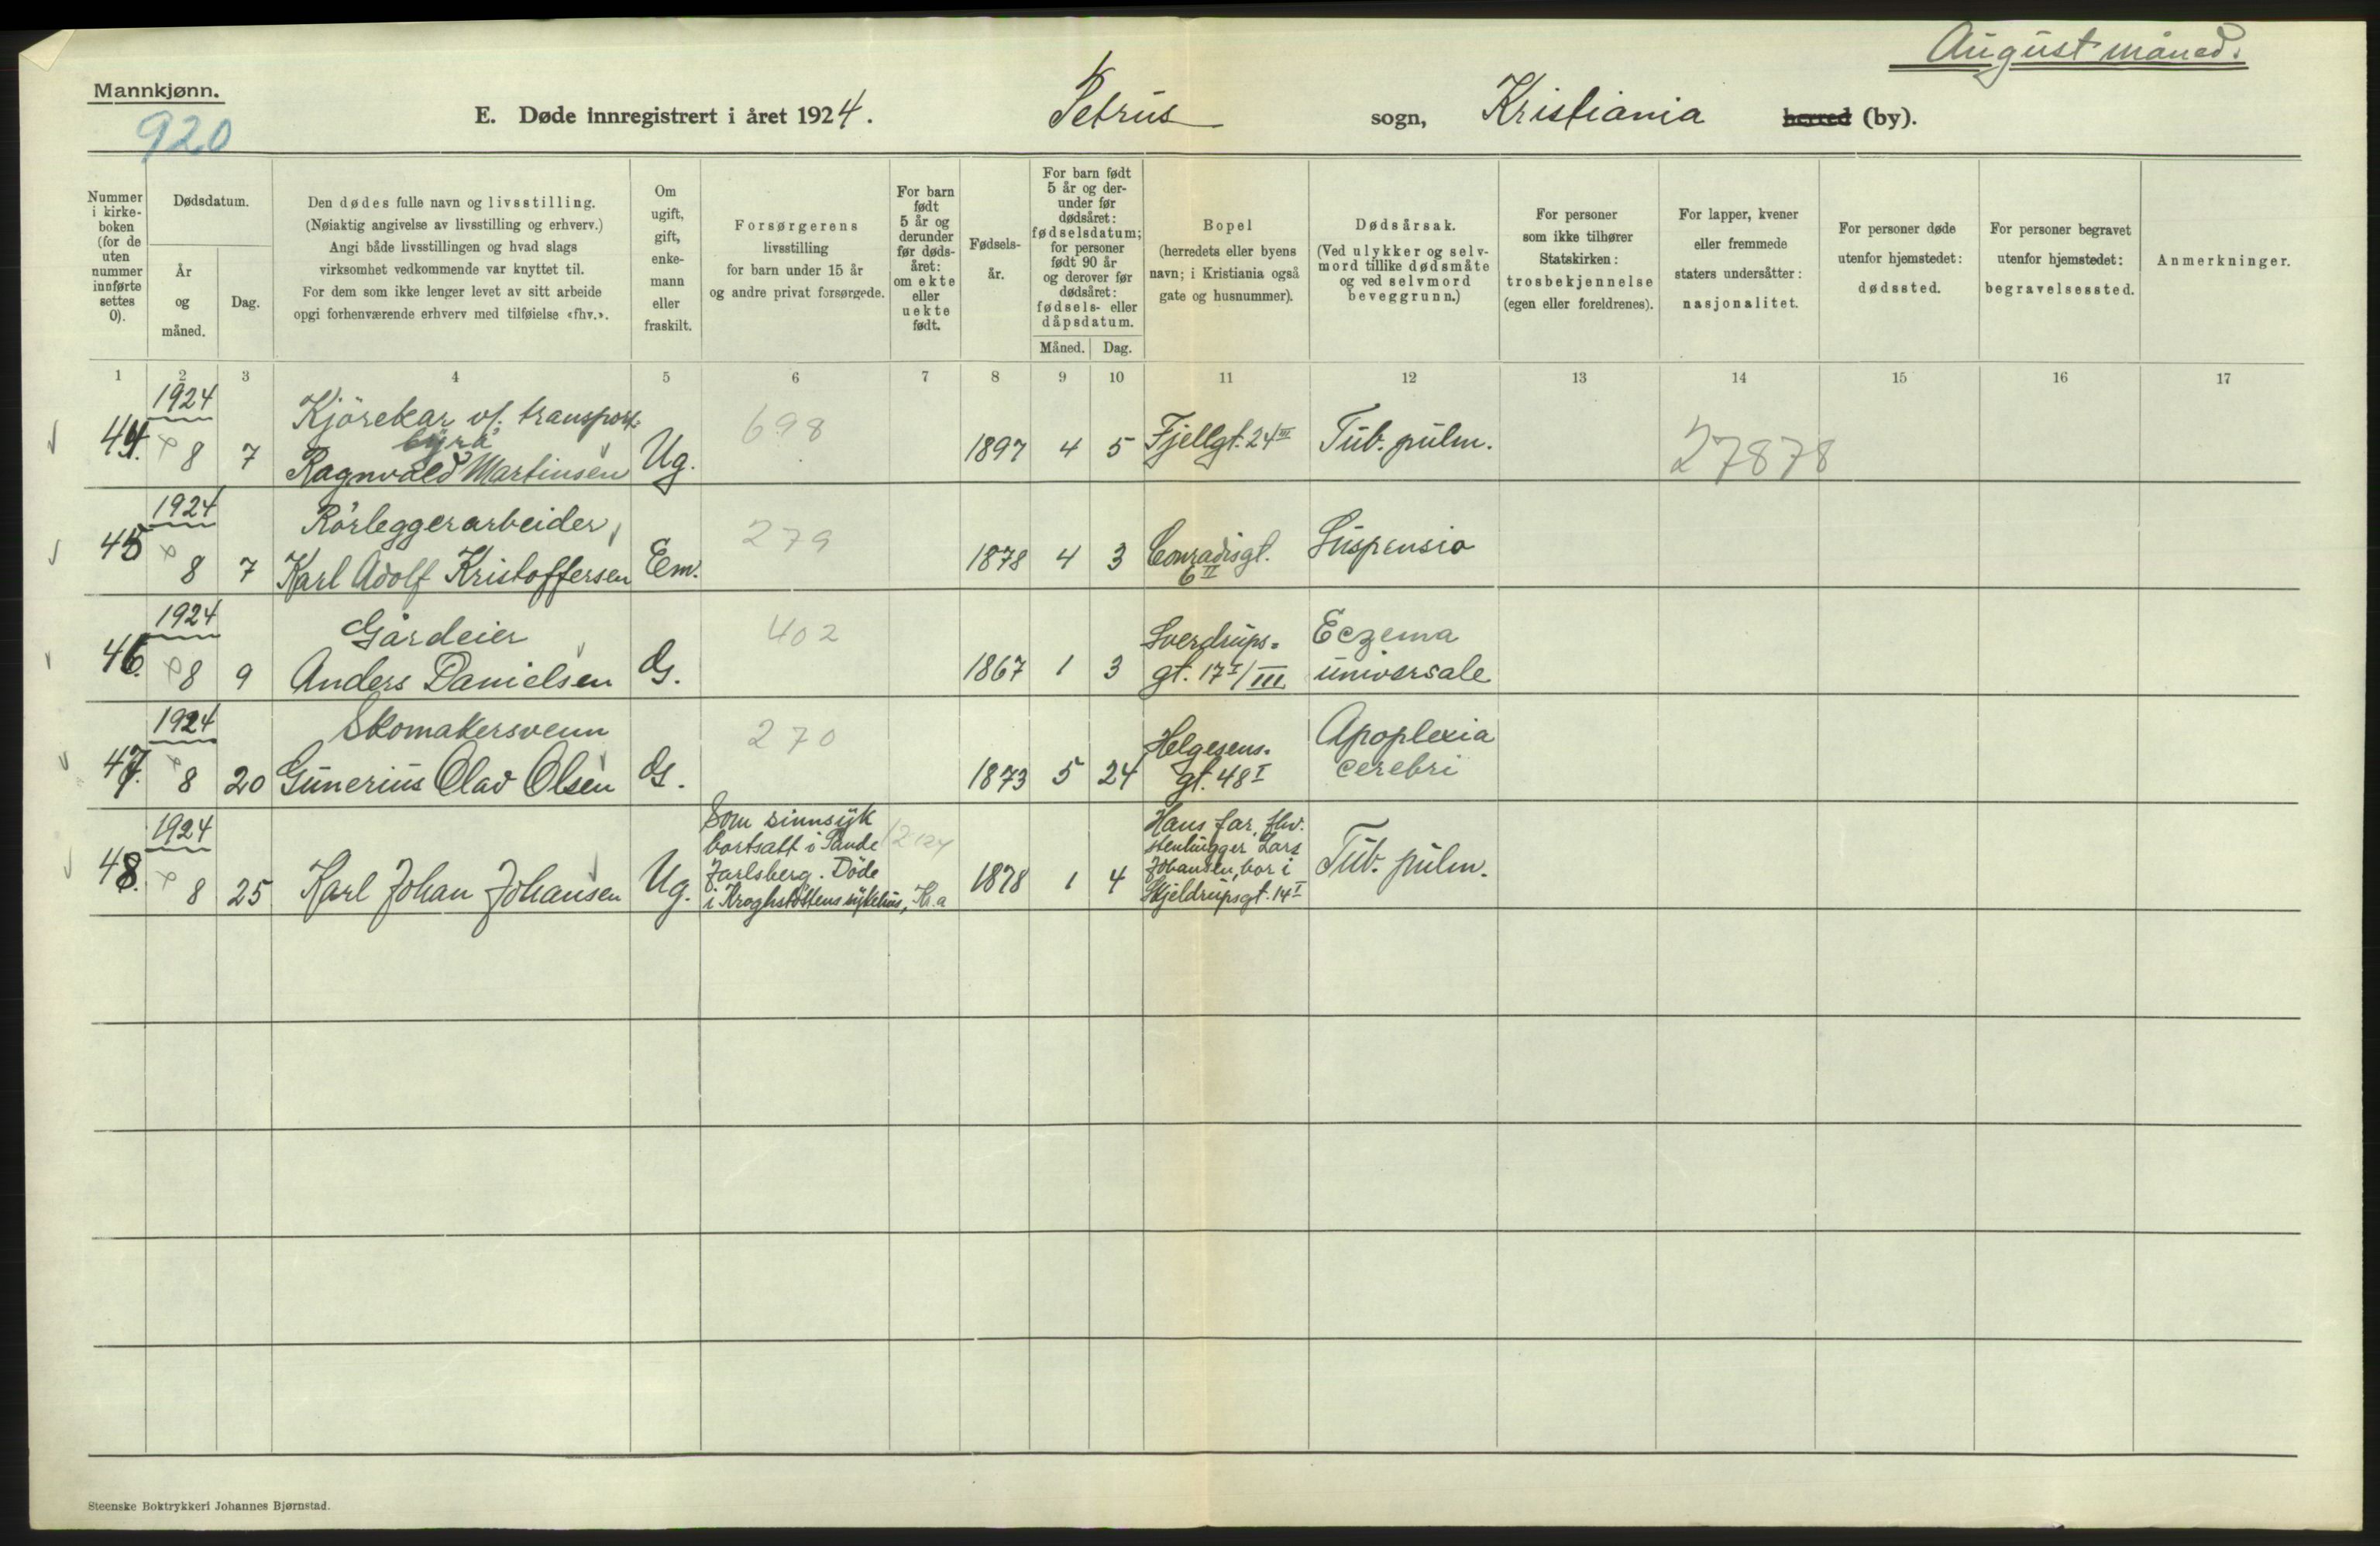 August måned.
Mannkjønn.
920
E. Døde innregistrert i året 1924.
Petrus sogn, Kristiania herred (by).
Nummer i kirke- boken (for de uten nummer innførte settes 0).
Dødsdatum.
År og måned.
Dag.
Den dødes fulle navn og livsstilling.
(Nøiaktig angivelse av livsstilling og erhverv.)
Angi både livsstillingen og hvad slags
virksomhet vedkommende var knyttet til.
For dem som ikke lenger levet av sitt arbeide
opgi forhenværende erhverv med tilføielse «fhv.».
Om ugift, gift, enke- mann eller fraskilt.
Forsørgerens
livsstilling
for barn under 15 år
og andre privat forsørgede.
For barn født 5 år og derunder før døds- året: om ekte eller uekte født.
Fødsels- år.
For barn født 5 år og der- under før dødsåret: fødselsdatum; for personer født 90 år og derover før dødsåret: fødsels- eller dåpsdatum.
Måned. Dag.
Bopel
(herredets eller byens
navn; i Kristiania også
gate og husnummer).
Dødsårsak.
(Ved ulykker og selv-
mord tillike dødsmåte
og ved selvmord
beveggrunn.)
For personer
som ikke tilhører
Statskirken:
trosbekjennelse
(egen eller foreldrenes).
For lapper, kvener
eller fremmede
staters undersåtter:
nasjonalitet.
For personer døde
utenfor hjemstedet:
dødssted.
For personer begravet
utenfor hjemstedet:
begravelsessted.
Anmerkninger.
1 2 3 4 5 6 7 8 9 10 11 12 13 14 15 16 17
1924
44. 8 7
Kjörekar v/. transport-
byrå
Ragnvald Martinsen
Ug. 698 1897 4 5 Fjellgt. 24 III Tub. pulm. 27878
1924
45 8 7
Rörleggerarbeider,
Karl Adolf Kristoffersen
Em. 279 1878 4 3
Conradisgt.
6 II
Suspensio
1924
46. 8 9
Gårdeier
Anders Danielsen
G. 402 1867 1 3
Sverdrups-
gt. 17 I/III
Eczema
universale
1924
47. 8 20
Skomakersvenn
Gunerius Olav Olsen
G. 270 1873 5 24
Helgesens-
gt. 48 I
Apoplexia
cerebri
1924
48. 8 25
Karl Johan Johansen
Ug.
Som sinnsyk
bortsatt i Sande
Jarlsberg. Döde
i Kroghstøttens sykehus, Kr.a
1878 1 4
Hans far, fhv.
stenhugger Lars
Johansen, bor i
Skjeldrupsgt. 14 I
Tub. pulm.
Steenske Boktrykkeri Johannes Bjørnstad.